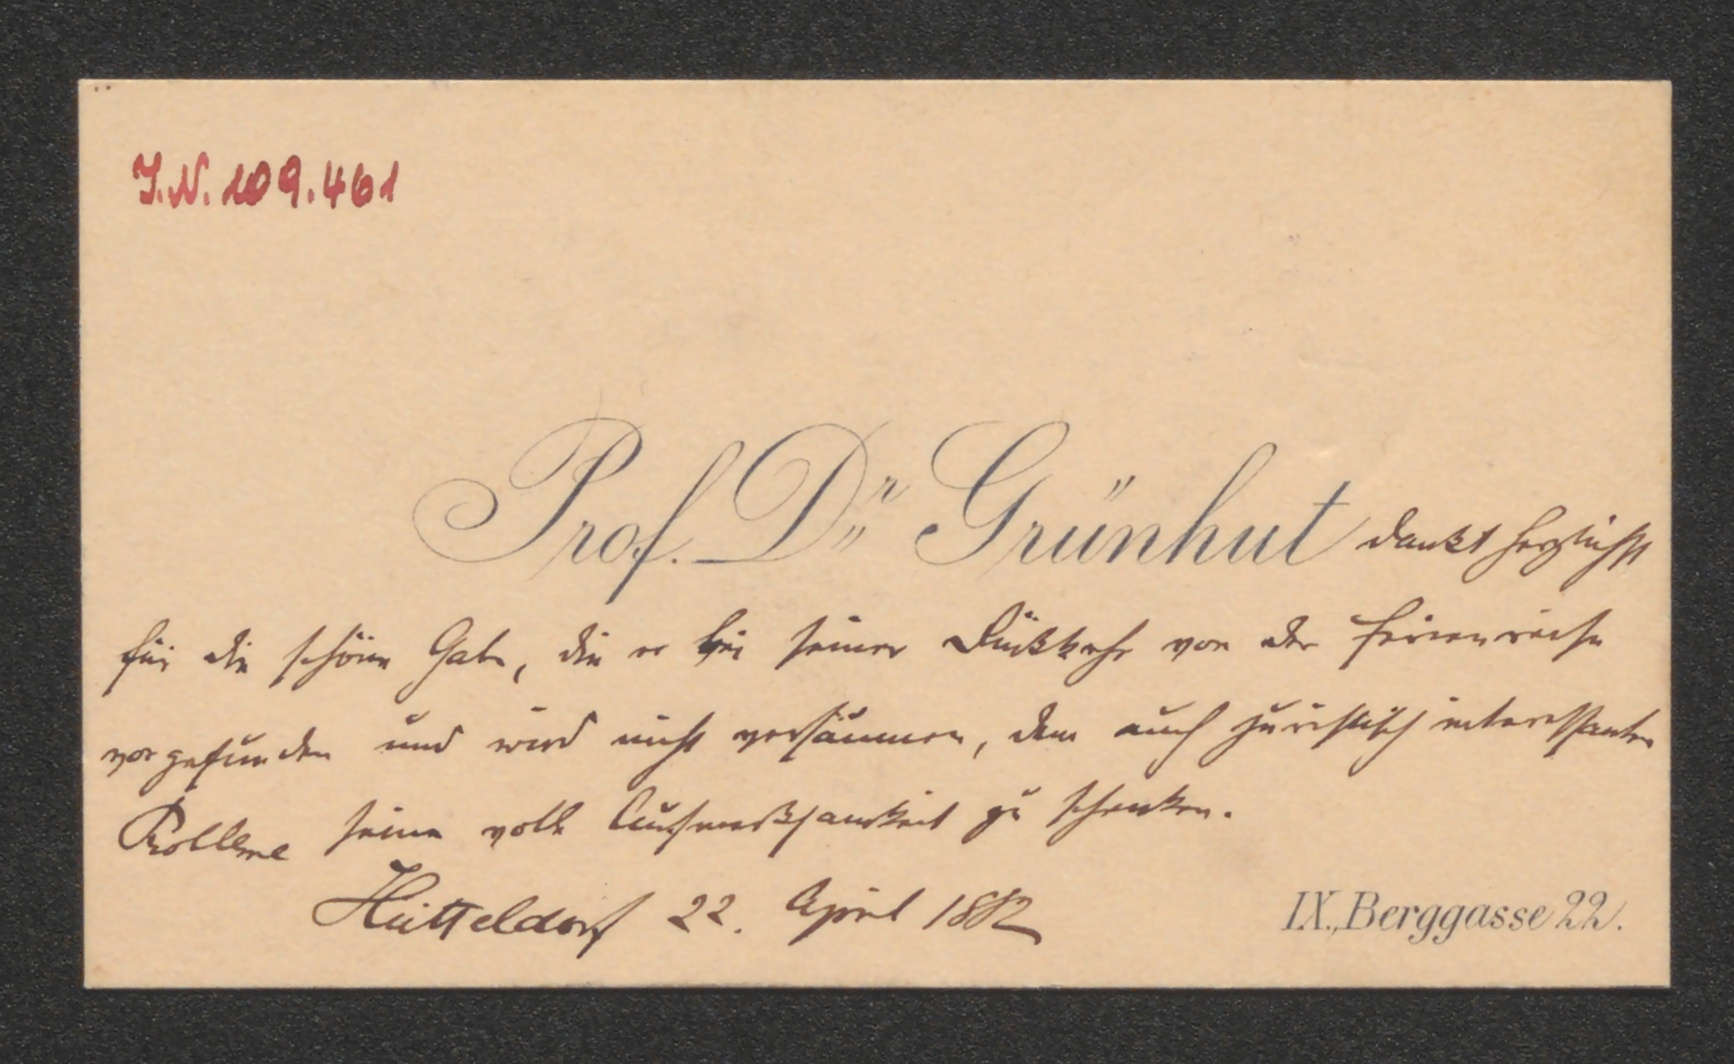 J.N. 109.461
Prof. Dr. Grünhut dankt herzlichst
für die schöne Gabe, die er bei seiner Rückkehr von der Ferienreise
vorgefunden und wird nicht versäumen, dem auch juristisch interessanten
Probleme seine volle Aufmerksamkeit zu schenken.
Hütteldorf 22. April 1882
IX., Berggasse 22.